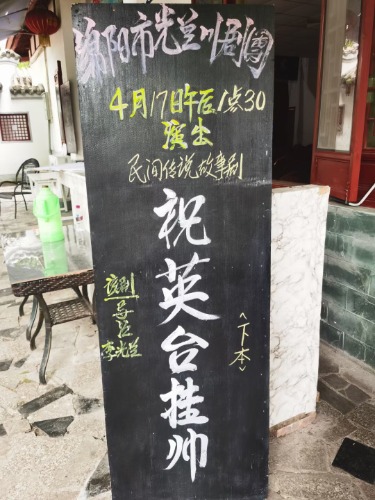 绵阳市光兰川剧团
4月17日午后1点30
演出
民间传说故事剧
祝英台挂帅
〈下本〉
该剧
导演
李光兰